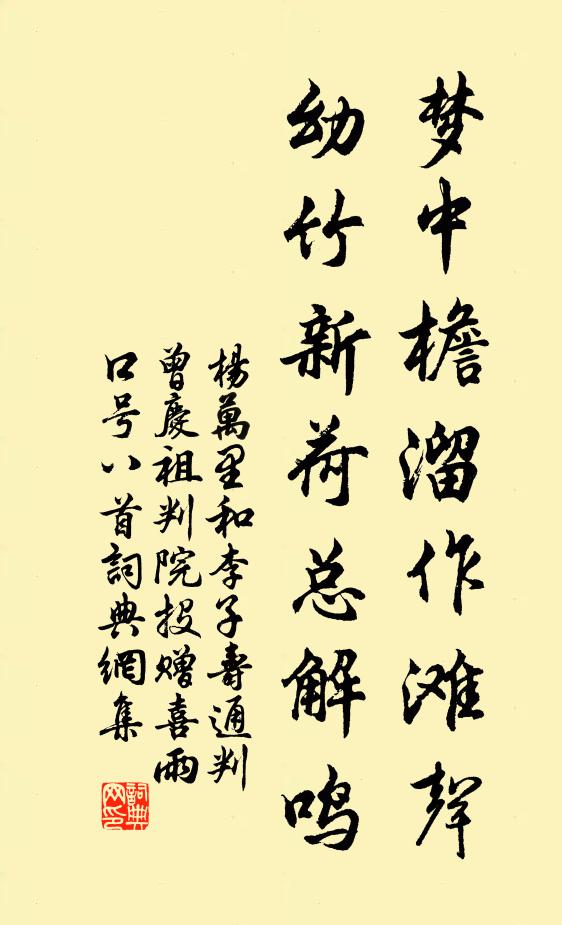 梦中檐溜作滩声
幼竹新荷总解鸣
楊萬里和李子壽通判
曾慶祖判院投赠喜雨
口号八首詞典網集
詞典
网印